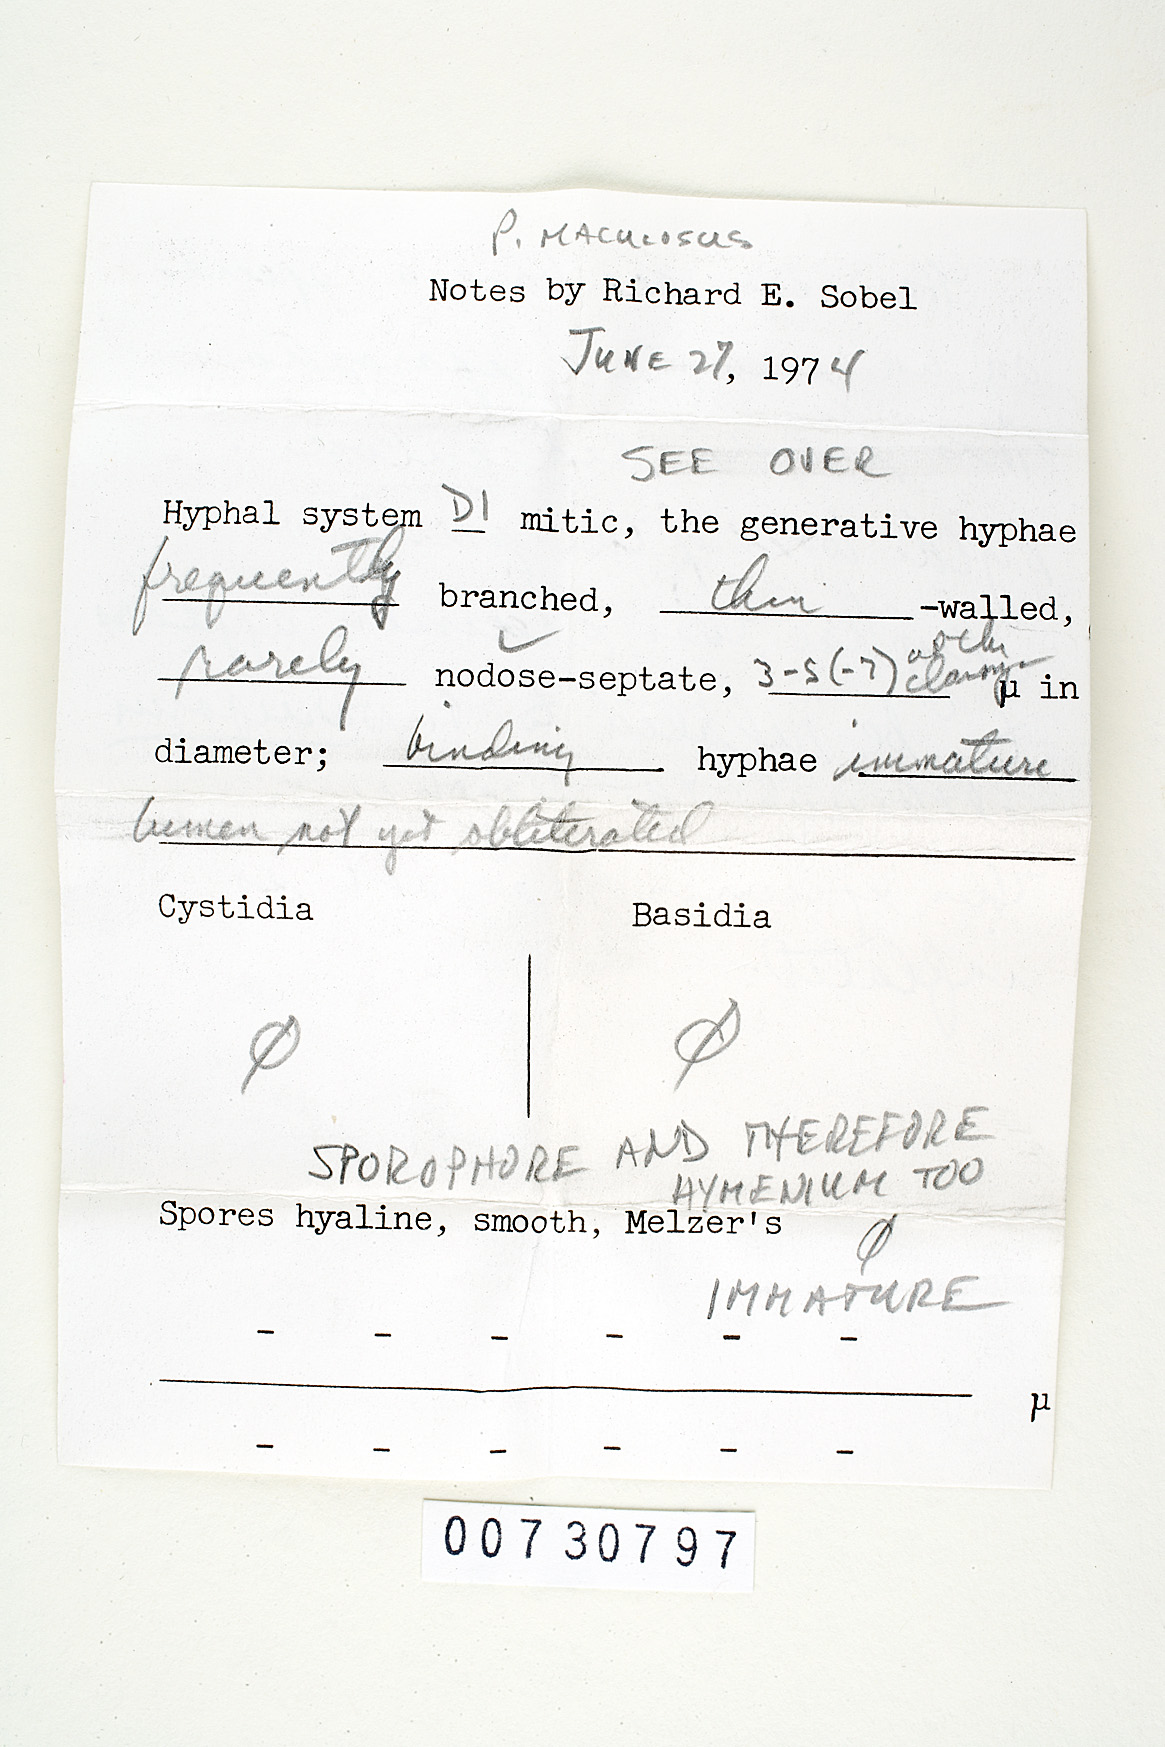 P. MACULOSUS
Notes by Richard E. Sobel
JUNE 27, 1974
SEE OVER
Hyphal system DI mitic, the generative hyphae
frequently branched, thin -walled,
rarely ✓ nodose-septate, 3-5(-7) at the clamp µ in
diameter; binding hyphae immature
lumen not yet obliterated
Cystidia Basidia
Ø Ø
SPOROPHORE AND THEREFORE
HYMENIUM TOO
Spores hyaline, smooth, Melzer's Ø
IMMATURE
- - - - - -
µ
- - - - - -
00730797